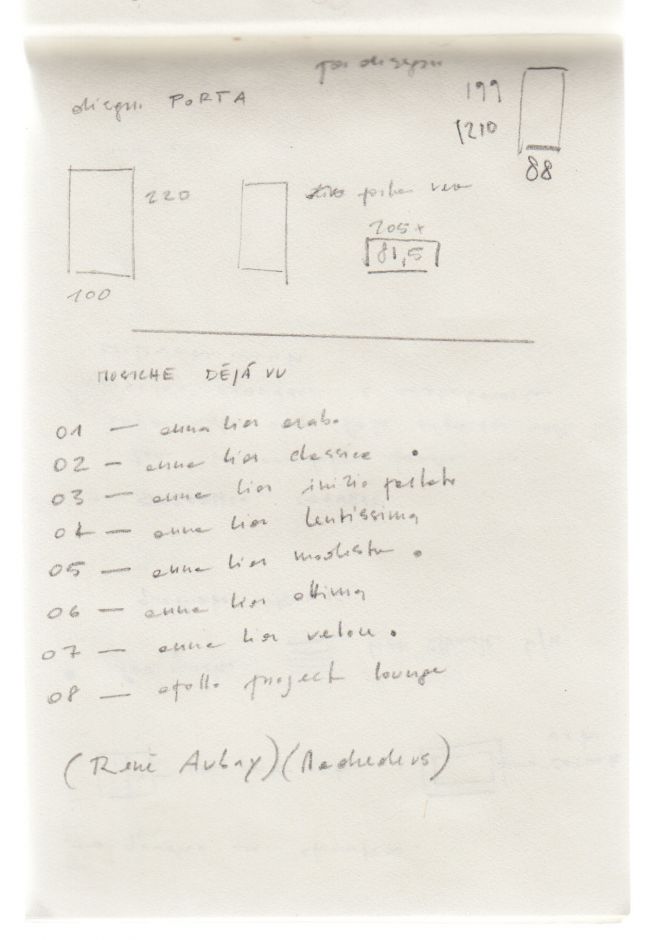 per disegni
disegni PORTA
199
210
88
220
porta vera
205 x
81,5
100
MUSICHE DÉJÀ VU
01 — anna lior arab.
02 — anna lior classica .
03 — anna lior inizio parlato
04 — anna lior lentissima
05 — anna lior modesta .
06 — anna lior ottima
07 — anna lior veloce .
08 — apollo project lounge
(René Aubry)